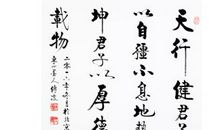 天行健君子
以自彊不息地
坤君子以厚德
載物